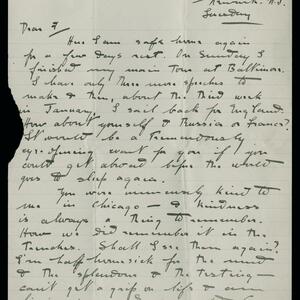 Newark. N.J.
Tuesday
Dear F/
Here I am safe home again
for a few days rest. On Sunday I
finished my main Tour at Baltimore.
I have only three more speeches to
make & then, about the third week
in January, I sail back for England.
How about yourself & Russia or France?
It would be a tremendously
eye-opening want for you if you
could get abroad before the world
goes to sleep again.
You were immensely kind to
me in Chicago — & kindness
is always a thing to remember.
How we did remember it in the
Trenches. Shall I see them again?
I'm half homesick for the mud
& the splendour & the testing —
can't get a grip on life & am